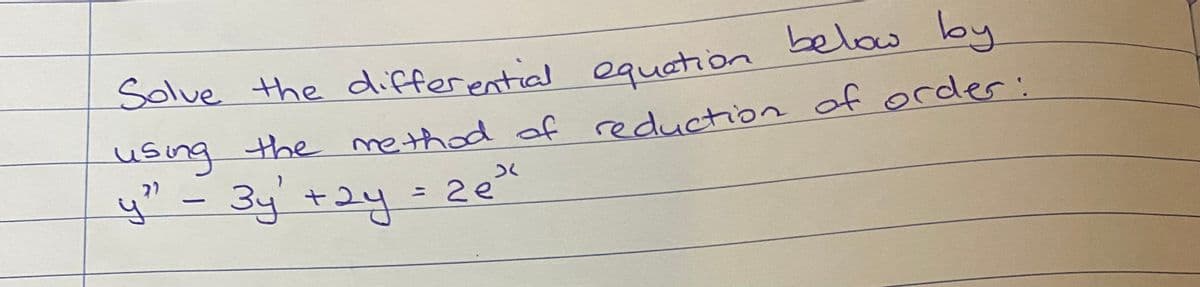 Solve the differential equation below by
using the method of reduction of order:
y'' - 3y' + 2y = 2e^x